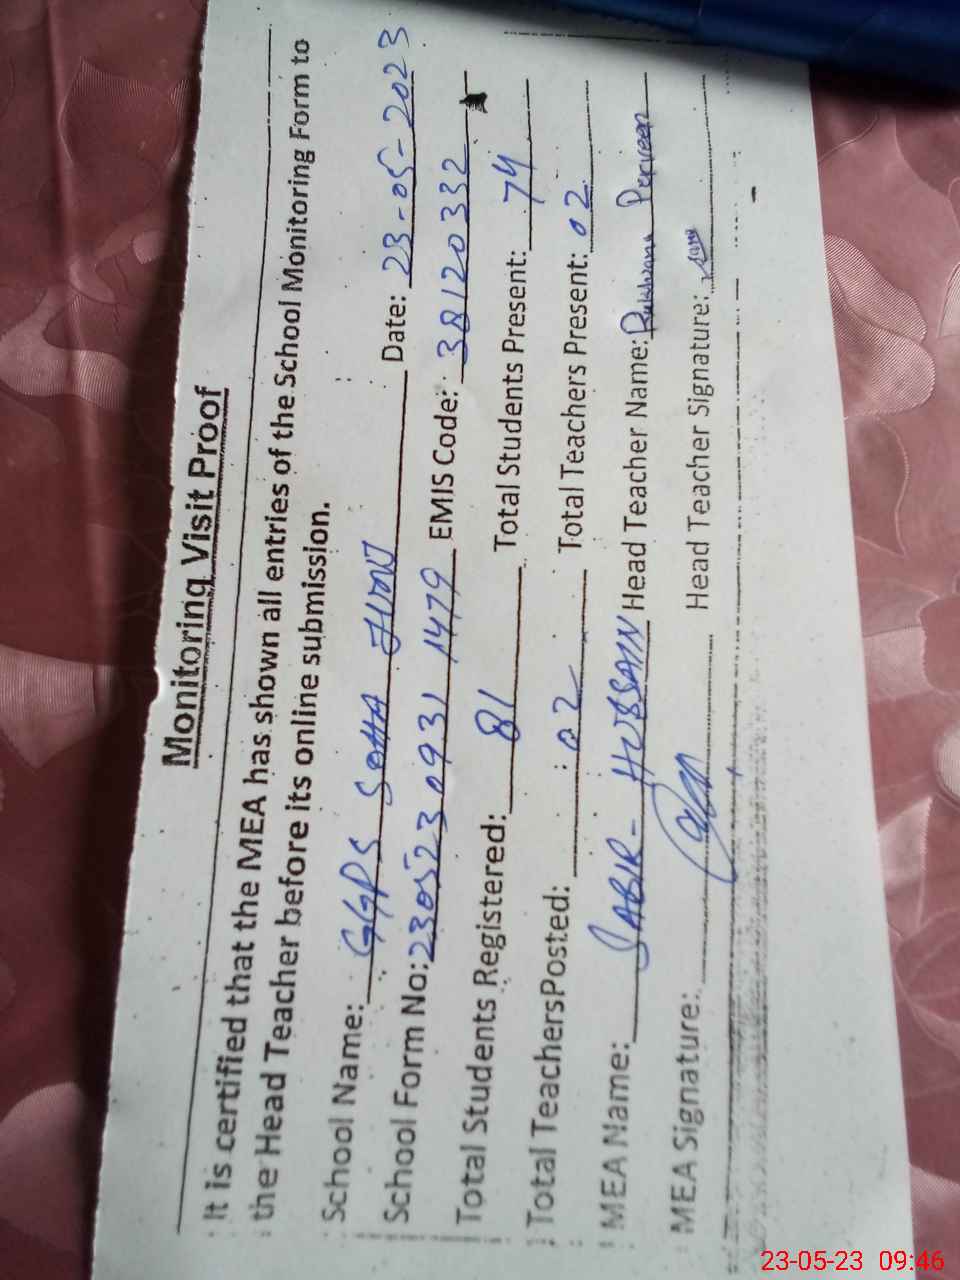 Monitoring Visit Proof
It is certified that the MEA has shown all entries of the School Monitoring Form to
the Head Teacher before its online submission.
School Name: GGPS Sotta Date: 23-05-2023
School Form No: 230523 0931 1479 EMIS Code: 38120332
Total Students Registered: 81 Total Students Present: 74
Total TeachersPosted: 02 Total Teachers Present: 02
MEA Name: SABIR- HUSSAIN Head Teacher Name: Rukhsana Perveen
MEA Signature: Head Teacher Signature:
23-05-23 09:46